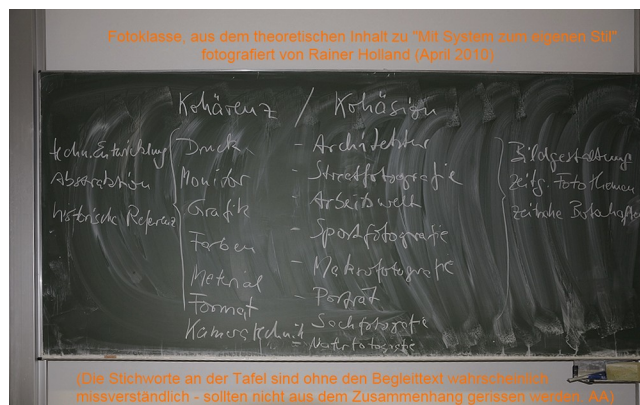 Fotoklasse, aus dem theoretischen Inhalt zu "Mit System zum eigenen Stil"
fotografiert von Rainer Holland (April 2016)
Kohärenz / Kohäsion
techn. Entwicklung
Abstraktion
historische Referenz
Druck
Monitor
Grafik
Farben
Material
Format
Kameratechnik
- Architektur
- Streetfotografie
- Arbeitswelt
- Sportfotografie
- Makrofotografie
- Porträt
- Sachfotografie
- Naturfotografie
Bildgestaltung
zeitg. Fotothemen
Botschaften
(Die Stichworte an der Tafel sind ohne den Begleittext wahrscheinlich
missverständlich - sollten nicht aus dem Zusammenhang gerissen werden. AA)